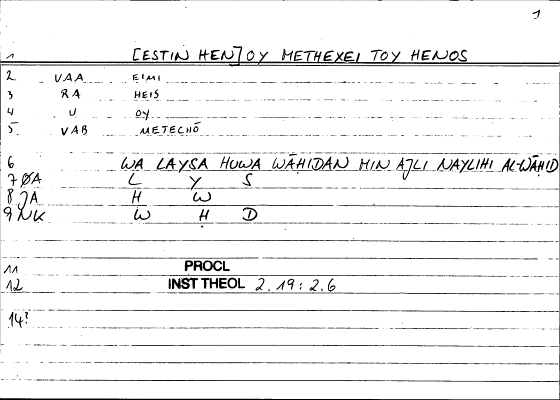 1
1 [ESTIN HEN] OY METHEXEI TOY HENOS
2 VAA EIMI
3 RA HEIS
4 U OY
5. VAB METECHŌ
6 WA LAYSA HUWA WĀḤIDAN MIN AJLI NAYLIHI AL-WĀḤID
7 ØA L Y S
8 JA H W
9 NK W Ḥ D
11 PROCL
12 INST THEOL 2.19:2.6
14?